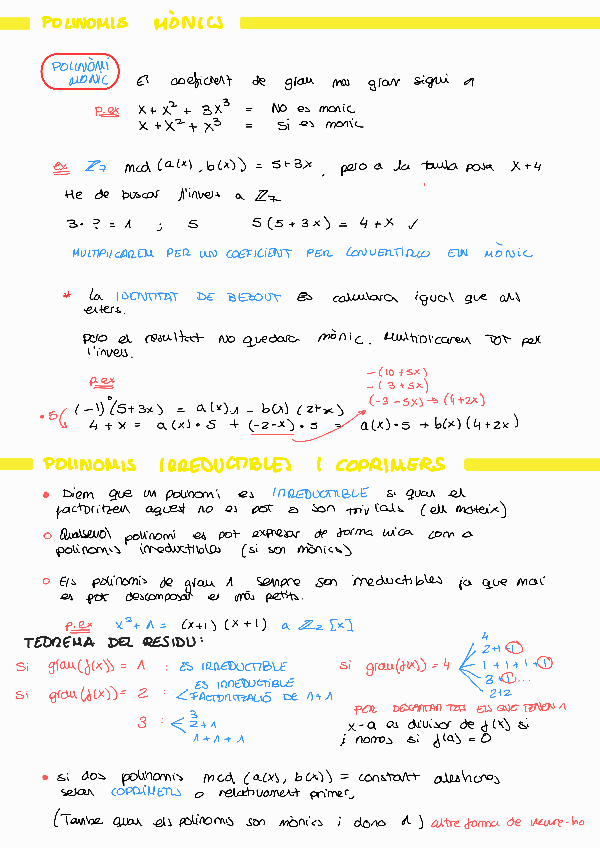 POLINOMIS MÒNICS
POLINÒMI
MÒNIC
El coeficient de grau mes gran sigui 1
p.ex x + x² + 3x³ = No es monic
x + x² + x³ = Si es monic
ex Z₇ mcd (a(x), b(x)) = 5+3x, pero a la taula posa x+4
He de buscar l'invers a Z₇
3 · ? = 1 ; 5 5(5+3x) = 4+x ✓
MULTIPLICAREM PER UN COEFICIENT PER CONVERTIRLO EN MÒNIC
* La IDENTITAT DE BEZOUT es calculara igual que als
enters.
Pero el resultat no quedara mònic. Multiplicarem TOT per
l'invers.
p.ex
-(10+5x)
-(3+5x)
(-3-5x) → (4+2x)
·5 (-1)(5+3x) = a(x)1 - b(x)(2+x)
4+x = a(x)·5 + (-2-x)·5 = a(x)·5 + b(x)(4+2x)
POLINOMIS IRREDUCTIBLES I COPRIMERS
• Diem que un polinomi es IRREDUCTIBLE si quan el
factoritzen aquest no es pot o son trivials (ell mateix)
Qualsevol polinomi es pot expresar de forma unica com a
polinomis irreductibles (si son mònics)
Els polinomis de grau 1 sempre son irreductibles ja que mai
es pot descomposar es més petits.
p.ex x²+1 = (x+1)(x+1) a Z₂[x]
TEOREMA DEL RESIDU:
Si grau(f(x)) = 1 : ES IRREDUCTIBLE
Si grau(f(x)) = 2 : < ES IRREDUCTIBLE
FACTORITZACIÓ DE 1+1
3 : < 3
2+1
1+1+1
Si grau(f(x)) = 4
4
2+1+1
1+1+1+1
3+1...
2+2
PER DESCARTAR TOTS ELS QUE TENEN 1
x-a es divisor de f(x) si
i nomes si f(a) = 0
• Si dos polinomis mcd (a(x), b(x)) = constant aleshores
seran COPRIMERS o relativament primer,
(També quan els polinomis son mònics i dona 1) altre forma de veure-ho